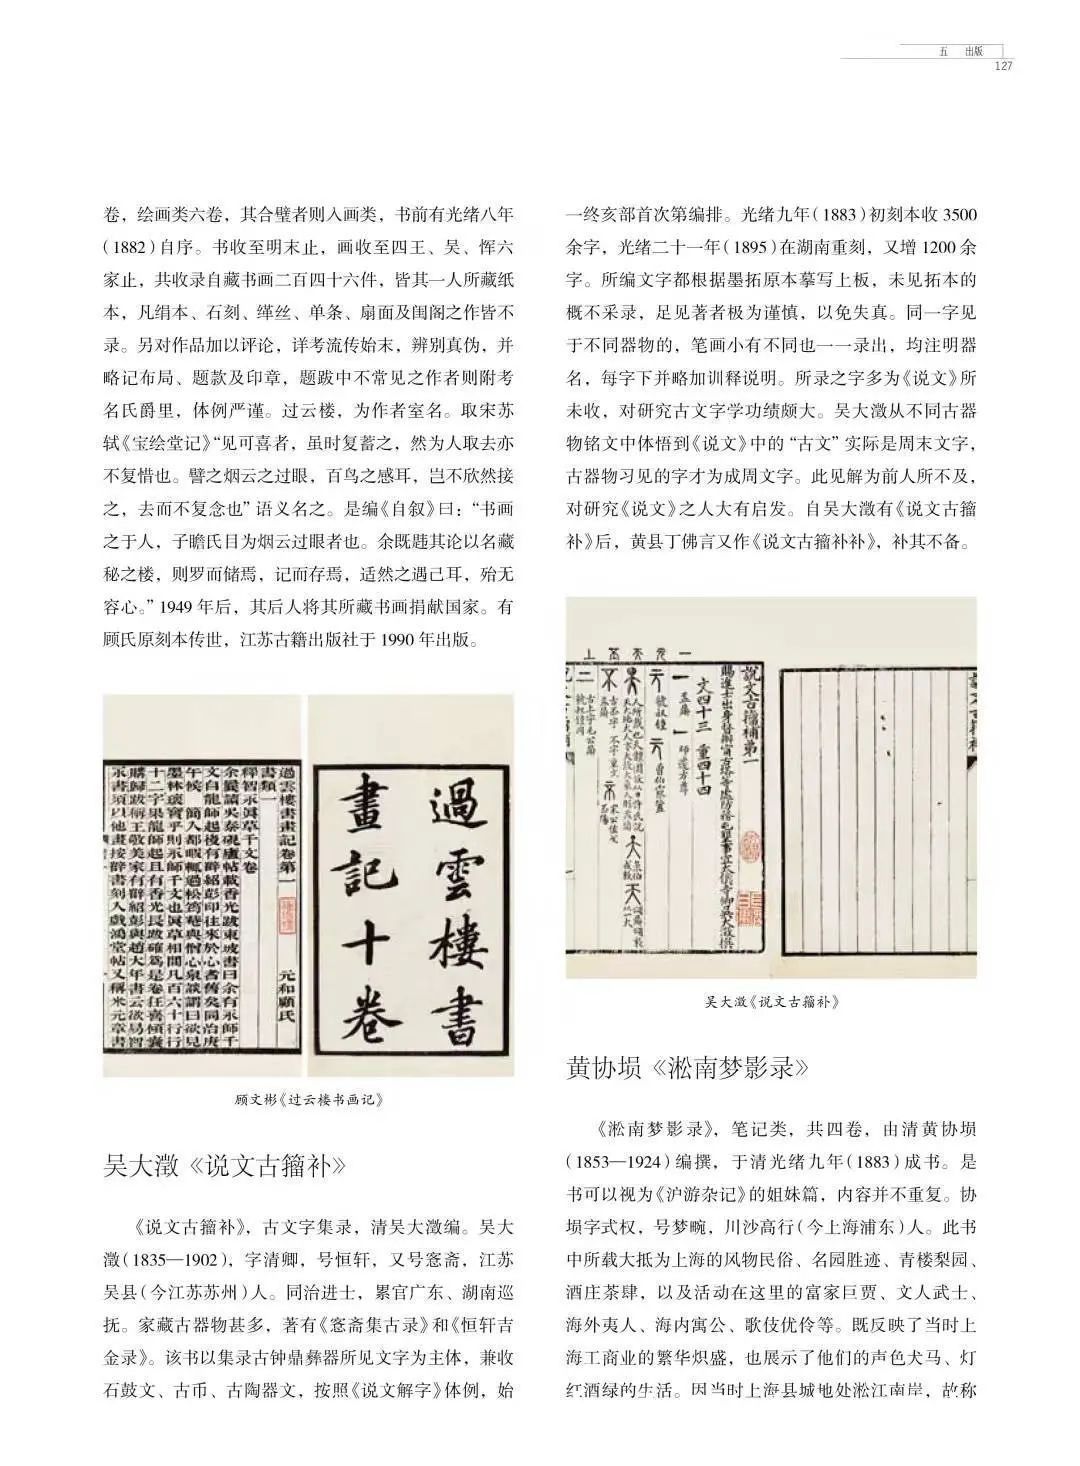 五 出版
127
卷，绘画类六卷，其合璧者则入画类，书前有光绪八年
（1882）自序。书收至明末止，画收至四王、吴、恽六
家止，共收录自藏书画二百四十六件，皆其一人所藏纸
本，凡绢本、石刻、缂丝、单条、扇面及闺阁之作皆不
录。另对作品加以评论，详考流传始末，辨别真伪，并
略记布局、题款及印章，题跋中不常见之作者则附考
名氏爵里，体例严谨。过云楼，为作者室名。取宋苏
轼《宝绘堂记》“见可喜者，虽时复蓄之，然为人取去亦
不复惜也。譬之烟云之过眼，百鸟之感耳，岂不欣然接
之，去而不复念也”语义名之。是编《自叙》曰：“书画
之于人，子瞻氏目为烟云过眼者也。余既韪其论以名藏
秘之楼，则罗而储焉，记而存焉，适然之遇己耳，殆无
容心。”1949 年后，其后人将其所藏书画捐献国家。有
顾氏原刻本传世，江苏古籍出版社于 1990 年出版。
過雲樓書
畫記十卷
過雲樓書畫記卷第一
元和顧氏
書類一
釋智永眞草千文卷
顾文彬《过云楼书画记》
吴大澂《说文古籀补》
《说文古籀补》，古文字集录，清吴大澂编。吴大
澂（1835—1902），字清卿，号恒轩，又号愙斋，江苏
吴县（今江苏苏州）人。同治进士，累官广东、湖南巡
抚。家藏古器物甚多，著有《愙斋集古录》和《恒轩吉
金录》。该书以集录古钟鼎彝器所见文字为主体，兼收
石鼓文、古币、古陶器文，按照《说文解字》体例，始
一终亥部首次第编排。光绪九年（1883）初刻本收 3500
余字，光绪二十一年（1895）在湖南重刻，又增 1200 余
字。所编文字都根据墨拓原本摹写上板，未见拓本的
概不采录，足见著者极为谨慎，以免失真。同一字见
于不同器物的，笔画小有不同也一一录出，均注明器
名，每字下并略加训释说明。所录之字多为《说文》所
未收，对研究古文字学功绩颇大。吴大澂从不同古器
物铭文中体悟到《说文》中的“古文”实际是周末文字，
古器物习见的字才为成周文字。此见解为前人所不及，
对研究《说文》之人大有启发。自吴大澂有《说文古籀
补》后，黄县丁佛言又作《说文古籀补补》，补其不备。
說文古籀補第一
文四十三 重四十四
吴大澂《说文古籀补》
黄协埙《淞南梦影录》
《淞南梦影录》，笔记类，共四卷，由清黄协埙
（1853—1924）编撰，于清光绪九年（1883）成书。是
书可以视为《沪游杂记》的姐妹篇，内容并不重复。协
埙字式权，号梦畹，川沙高行（今上海浦东）人。此书
中所载大抵为上海的风物民俗、名园胜迹、青楼梨园、
酒庄茶肆，以及活动在这里的富家巨贾、文人武士、
海外夷人、海内寓公、歌伎优伶等。既反映了当时上
海工商业的繁华炽盛，也展示了他们的声色犬马、灯
红酒绿的生活。因当时上海县城地处淞江南岸，故称